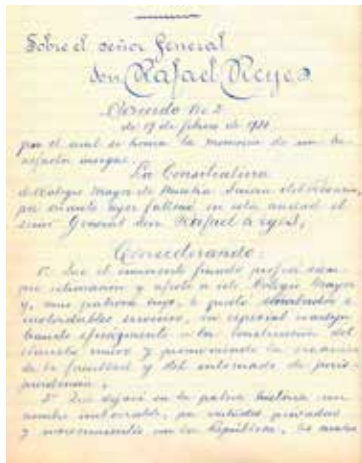 Sobre el señor General
don Rafael Reyes
Acuerdo No 2
de 19 de febrero de 1921
por el cual se honra la memoria de un
insigne.
La Consiliatura
del Colegio Mayor de Nuestra Señora del Rosario,
por cuanto ayer falleció en esta ciudad el
señor General don Rafael Reyes,
Considerando:
1º Que el eminente finado profesó siem
pre estimación y afecto a este Colegio Mayor
y, muy patrono suyo, le prestó señalados e
inolvidables servicios, en especial
eficazmente a la construcción del
claustro nuevo y promoviendo la creación
de la facultad y del internado de juris-
prudencia;
2º Que dejará en la patria historia un
nombre imborrable, por virtudes privadas
y merecimientos con la República, los